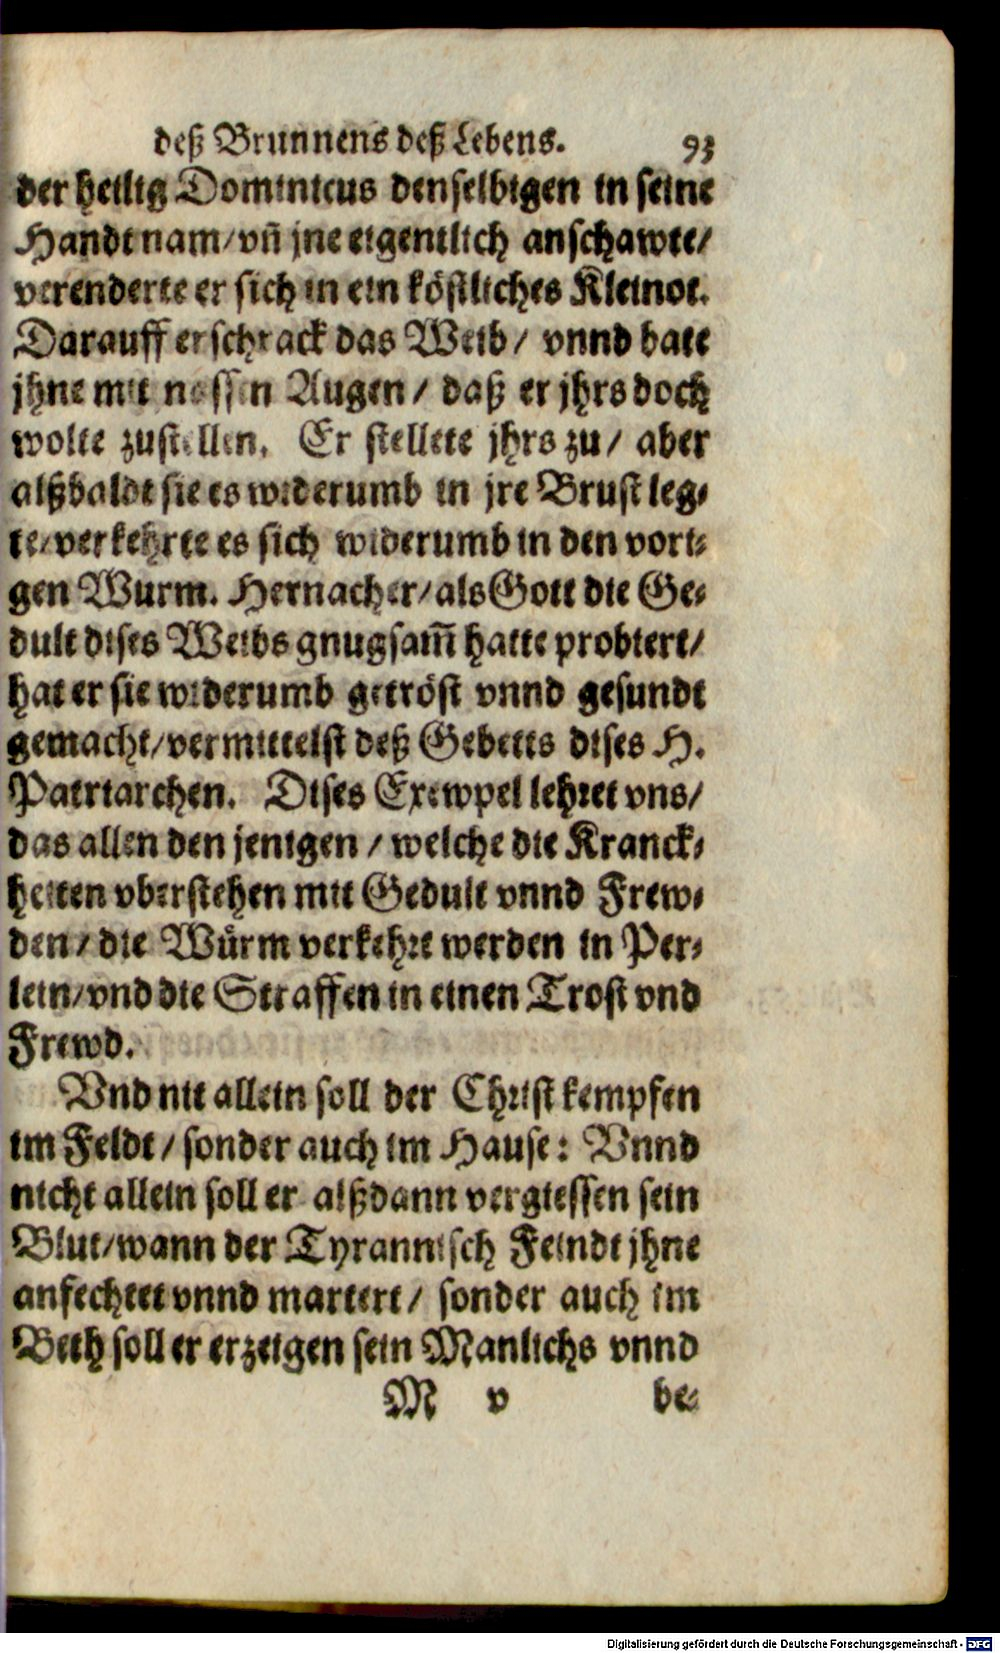 deß Brunnens deß Lebens. 93
der heilig Dominicus denselbigen in seine
Handt nam/ vñ jne eigentlich anschawte/
verenderte er sich in ein köstliches Kleinot.
Darauff erschrack das Weib/ vnnd bate
jhne mit nassen Augen/ daß er jhrs doch
wolte zustellen. Er stellete jhrs zu/ aber
alßbaldt sie es widerumb in jre Brust leg-
te/ verkehrte es sich widerumb in den vori-
gen Wurm. Hernacher/ als Gott die Ge-
dult dises Weibs gnugsam̃ hatte probiert/
hat er sie widerumb getröst vnnd gesundt
gemacht/ vermittelst deß Gebetts dises H.
Patriarchen. Dises Exewpel lehret vns/
das allen den jenigen/ welche die Kranck-
heiten vberstehen mit Gedult vnnd Frew-
den/ die Würm verkehrt werden in Per-
lein/ vnd die Straffen in einen Trost vnd
Frewd.
Vnd nit allein soll der Christ kempfen
im Feldt/ sonder auch im Hause: Vnnd
nicht allein soll er alßdann vergiessen sein
Blut/ wann der Tyrannisch Feindt jhne
anfechtet vnnd martert/ sonder auch im
Beth soll er erzeigen sein Manlichs vnnd
M v be-
Digitalisierung gefördert durch die Deutsche Forschungsgemeinschaft - DFG